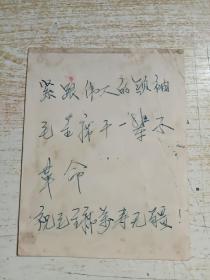 紧跟伟大的领袖
毛主席干一辈子
革命
祝毛主席万寿无疆!